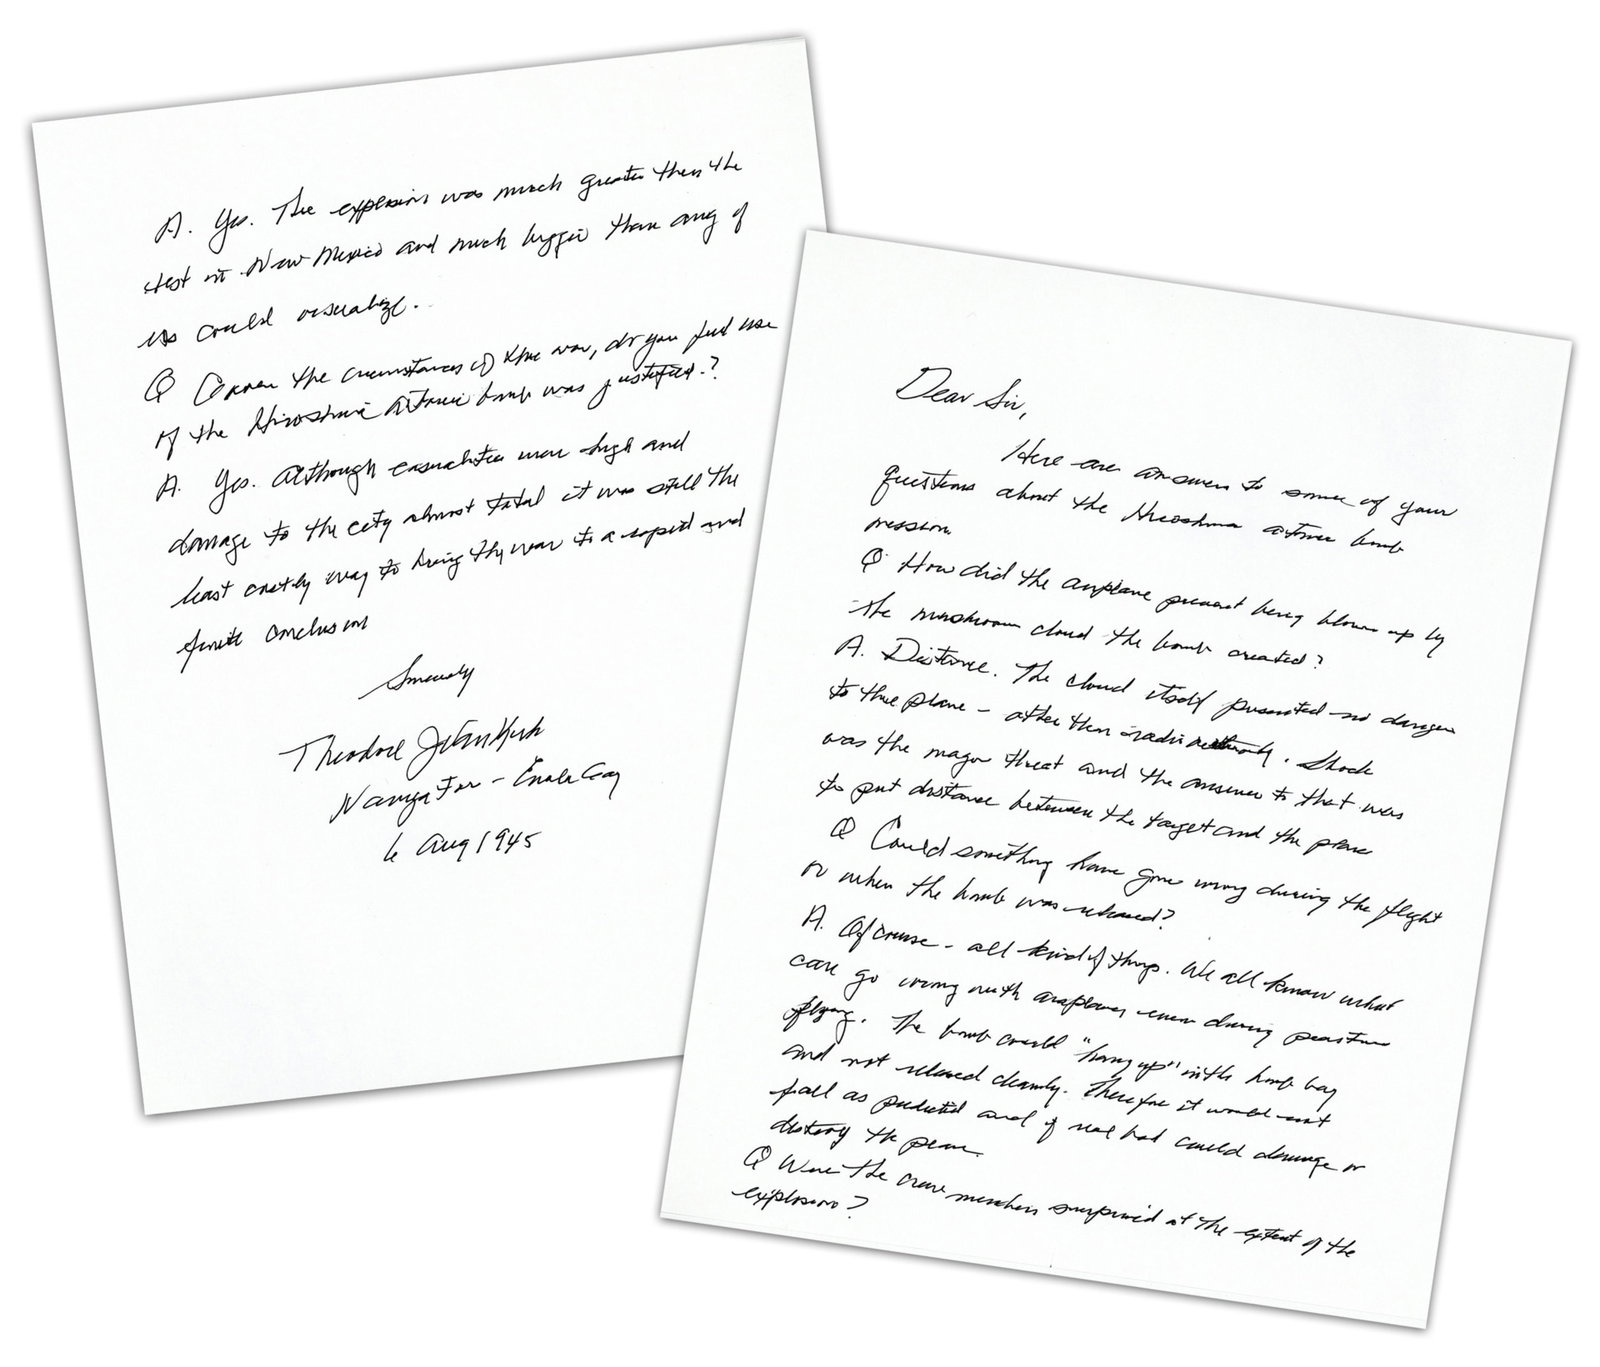 Dear Sir,
Here are answers to some of your
questions about the Hiroshima atomic bomb
mission
Q How did the airplane prevent being blown up by
the mushroom cloud the bomb created?
A. Distance. The cloud itself presented no danger
to the plane - other than radio . Shock
was the major threat and the answer to that was
to put distance between the target and the plane
Q Could something have gone wrong during the flight
or when the bomb was released?
A. Of course - all kind of things. We all know what
can go wrong with airplanes even during peacetime
flying. The bomb could "hang up" in the bomb bay
and not released cleanly. Therefore it would not
fall as predicted and if real bad could damage or
destroy the plane.
Q Were the crew members surprised at the extent of the
explosion?
A. Yes. The explosion was much greater then the
test in New Mexico and much bigger than any of
us could visualize.
Q Given the circumstances of the war, do you feel use
of the Hiroshima atomic bomb was justified.?
A. Yes. Although casualties were high and
damage to the city almost total it was still the
least costly way to bring the war to a rapid and
finite conclusion
Sincerely
Theodore J Van Kirk
Navigator - Enola Gay
6 Aug 1945